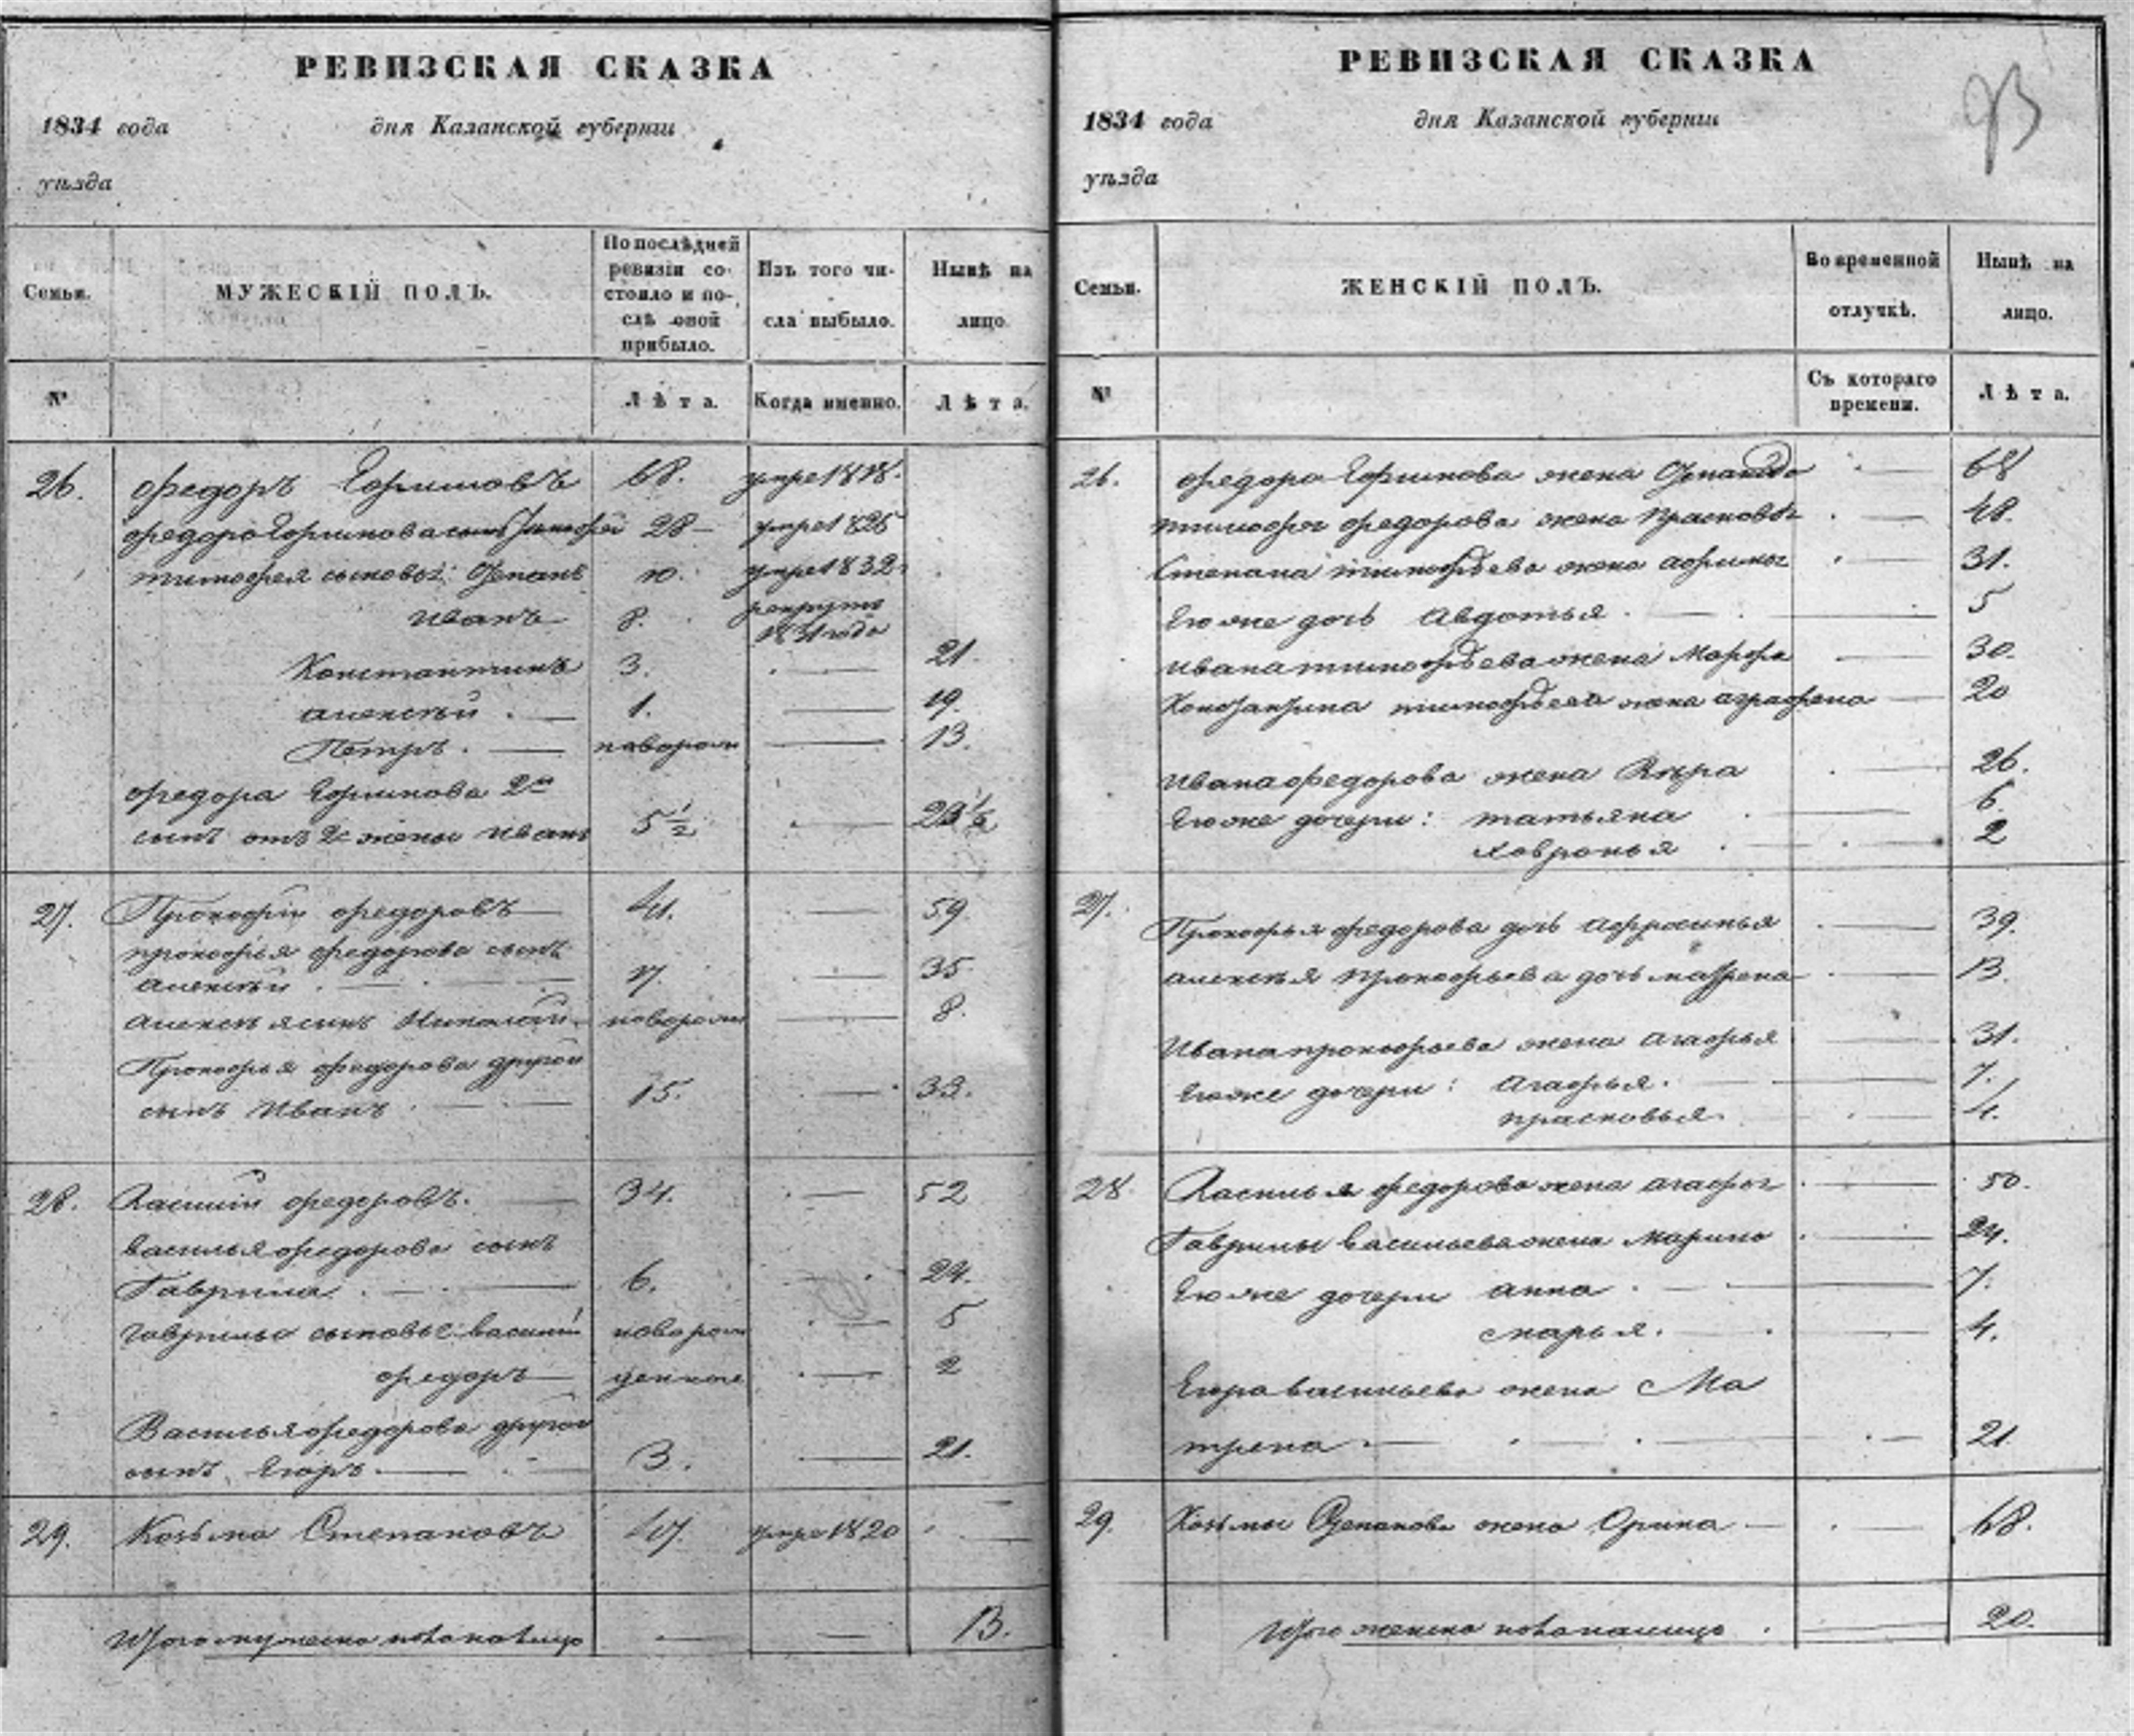 РЕВИЗСКАЯ СКАЗКА
1834 года дня Казанской губернии
уѣзда
Семьи.
МУЖЕСКІЙ ПОЛЪ.
По послѣдней
ревизіи со-
стояло и по-
слѣ оной
прибыло.
Изъ того чи-
сла выбыло.
Нынѣ на
лицо.
№
Лѣта.
Когда именно.
Лѣта.
26. Федоръ Ефимовъ 68. умре 1818.
Федора Ефимова сынъ Тимофей 28 умре 1826
тимофея сыновья: Степанъ 10. умре 1832.
иванъ 8. рекрутъ
1831 года
Константинъ 3. 21.
алексѣй 1. 19.
Петръ. новорож 13.
Федора Ефимова 2й
сынъ отъ 2й жены иванъ 5 1/2 23 1/2
27. Прокофій Федоровъ 41. 59.
прокофья Федорова сынъ
алексѣй 17. 35.
алексѣя сынъ Николай новорож 8.
Прокофья Федорова другой
сынъ иванъ 15. 33.
28. Василій Федоровъ. 34. 52
василья Федорова сынъ
Гаврила 6. 24.
гаврилы сыновья: василій новорож 5
Федоръ денные 2
Василья Федорова другой
сынъ Егоръ 3. 21.
29. Козьма Степановъ 47. умре 1820
Итого мужеска пола на лицо 13.
РЕВИЗСКАЯ СКАЗКА
93
1834 года дня Казанской губерніи
уѣзда
Семьи.
ЖЕНСКІЙ ПОЛЪ.
Во временной
отлучкѣ.
Нынѣ на
лицо.
№
Съ котораго
времени.
Лѣта.
26. Федора Ефимова жена 68
тимофея Федорова жена Прасковья 48.
Степана тимофѣева жена афимья 31.
Его же дочь Авдотья 5
ивана тимофѣева жена Марфа 30.
Константина тимофѣева жена аграфена 20
Ивана Федорова жена Вѣра 26.
Его же дочери: татьяна 6.
Ховронья 2
27. Прокофья Федорова дочь афросинья 39.
алексѣя Прокофьева дочь матрена 13.
Ивана прокофьева жена агафья 31.
Его же дочери: агафья. 7.
прасковья. 4.
28. Василья Федорова жена агафья 50.
Гаврилы васильева жена Марина 24.
Его же дочери анна 7.
марья. 4.
Егора васильева жена Ма
трена 21
29. Козьмы Степанова жена Орина 68.
Итого женска пола налицо 20.